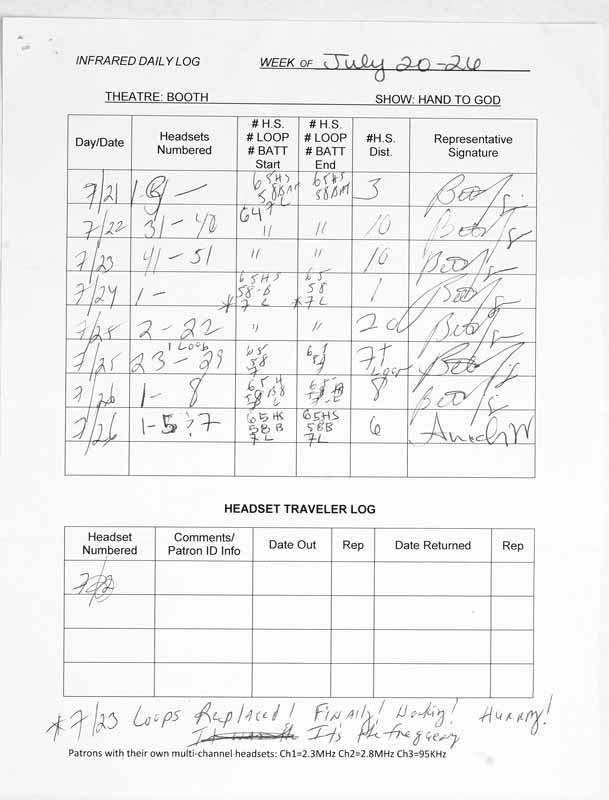 INFRARED DAILY LOG WEEK OF July 20-26
THEATRE: BOOTH SHOW: HAND TO GOD
Day/Date Headsets Numbered # H.S. # LOOP # BATT Start # H.S. # LOOP # BATT End #H.S. Dist. Representative Signature
7/21 1- 65HS 58BAT 7L 65HS 58BAT 7L 3
7/22 31-40 647 " " 10
7/23 41-51 " " 10
7/24 1- 65HS 58-B *7L 65 58 *7L 1
7/25 2-22 " " 20
7/25 23-29 1 Loop 65 58 7 7+
7/26 1-8 65H 58B 7L 8
7/26 1-5 7 65HS 58B 7L 65HS 58B 7L 6
HEADSET TRAVELER LOG
Headset Numbered Comments/ Patron ID Info Date Out Rep Date Returned Rep
*7/23 Loops Replaced! Finally! Working! Hurray!
It's the frequency
Patrons with their own multi-channel headsets: Ch1=2.3MHz Ch2=2.8MHz Ch3=95KHz